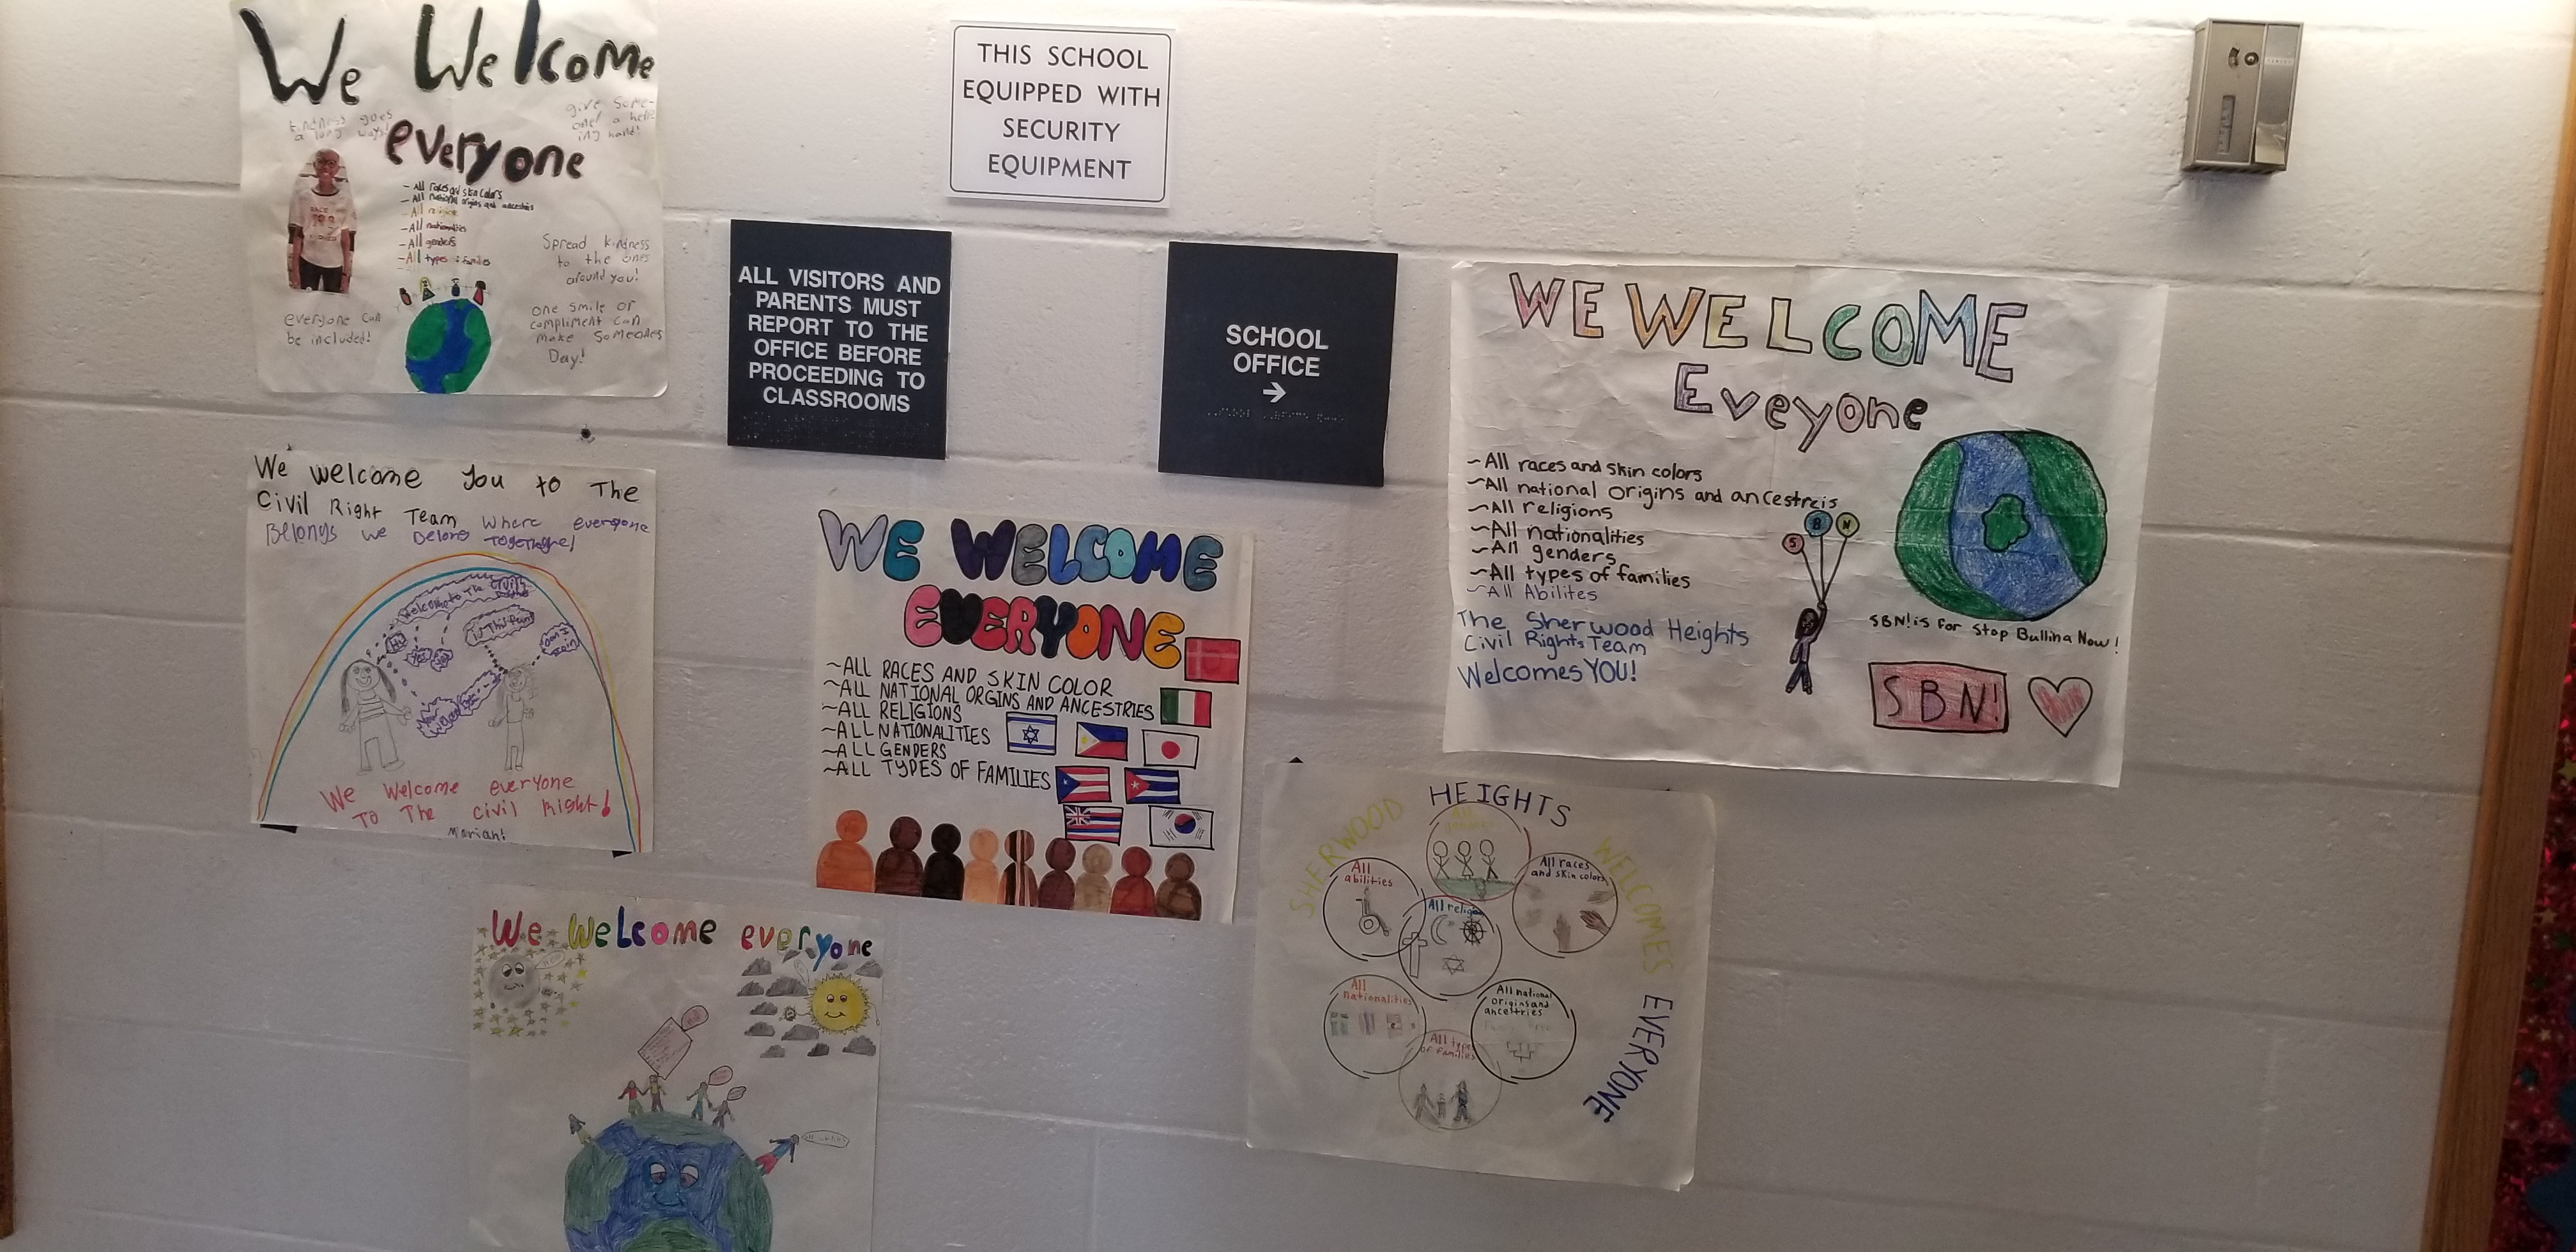 We Welcome
everyone
kindness goes
a long ways!
give some-
one! a help
ing hand!
RACE
- All races and skin colors
- All national origins and ancestries
- All religion
- All nationalities
- All genders
- All types of families
Spread kindness
to the ones
around you!
one smile or
compliment can
make someones
Day!
everyone can
be included!
THIS SCHOOL
EQUIPPED WITH
SECURITY
EQUIPMENT
ALL VISITORS AND
PARENTS MUST
REPORT TO THE
OFFICE BEFORE
PROCEEDING TO
CLASSROOMS
SCHOOL
OFFICE
→
WE WELCOME
Eveyone
~All races and skin colors
~All national origins and ancestreis
~All religions
~All nationalities
~All genders
~All types of families
~All Abilites
The Sherwood Heights
Civil Rights Team
Welcomes YOU!
S B N
SBN! is for Stop Bullina Now!
SBN!
We welcome you to The
Civil Right Team where everyone
Belongs we Belong
Welcome to The Civil
Hi
is This fun
can I
join
We Welcome everyone
To The civil Right!
WE WELCOME
EVERYONE
~ALL RACES AND SKIN COLOR
~ALL NATIONAL ORGINS AND ANCESTRIES
~ALL RELIGIONS
~ALL NATIONALITIES
~ALL GENDERS
~ALL TYPES OF FAMILIES
SHERWOOD HEIGHTS WELCOMES EVERYONE
All
abilities
All races
and skin colors
All religion
All
nationalities
All national
origins and
ancettries
All type
of families
We Welcome everyone